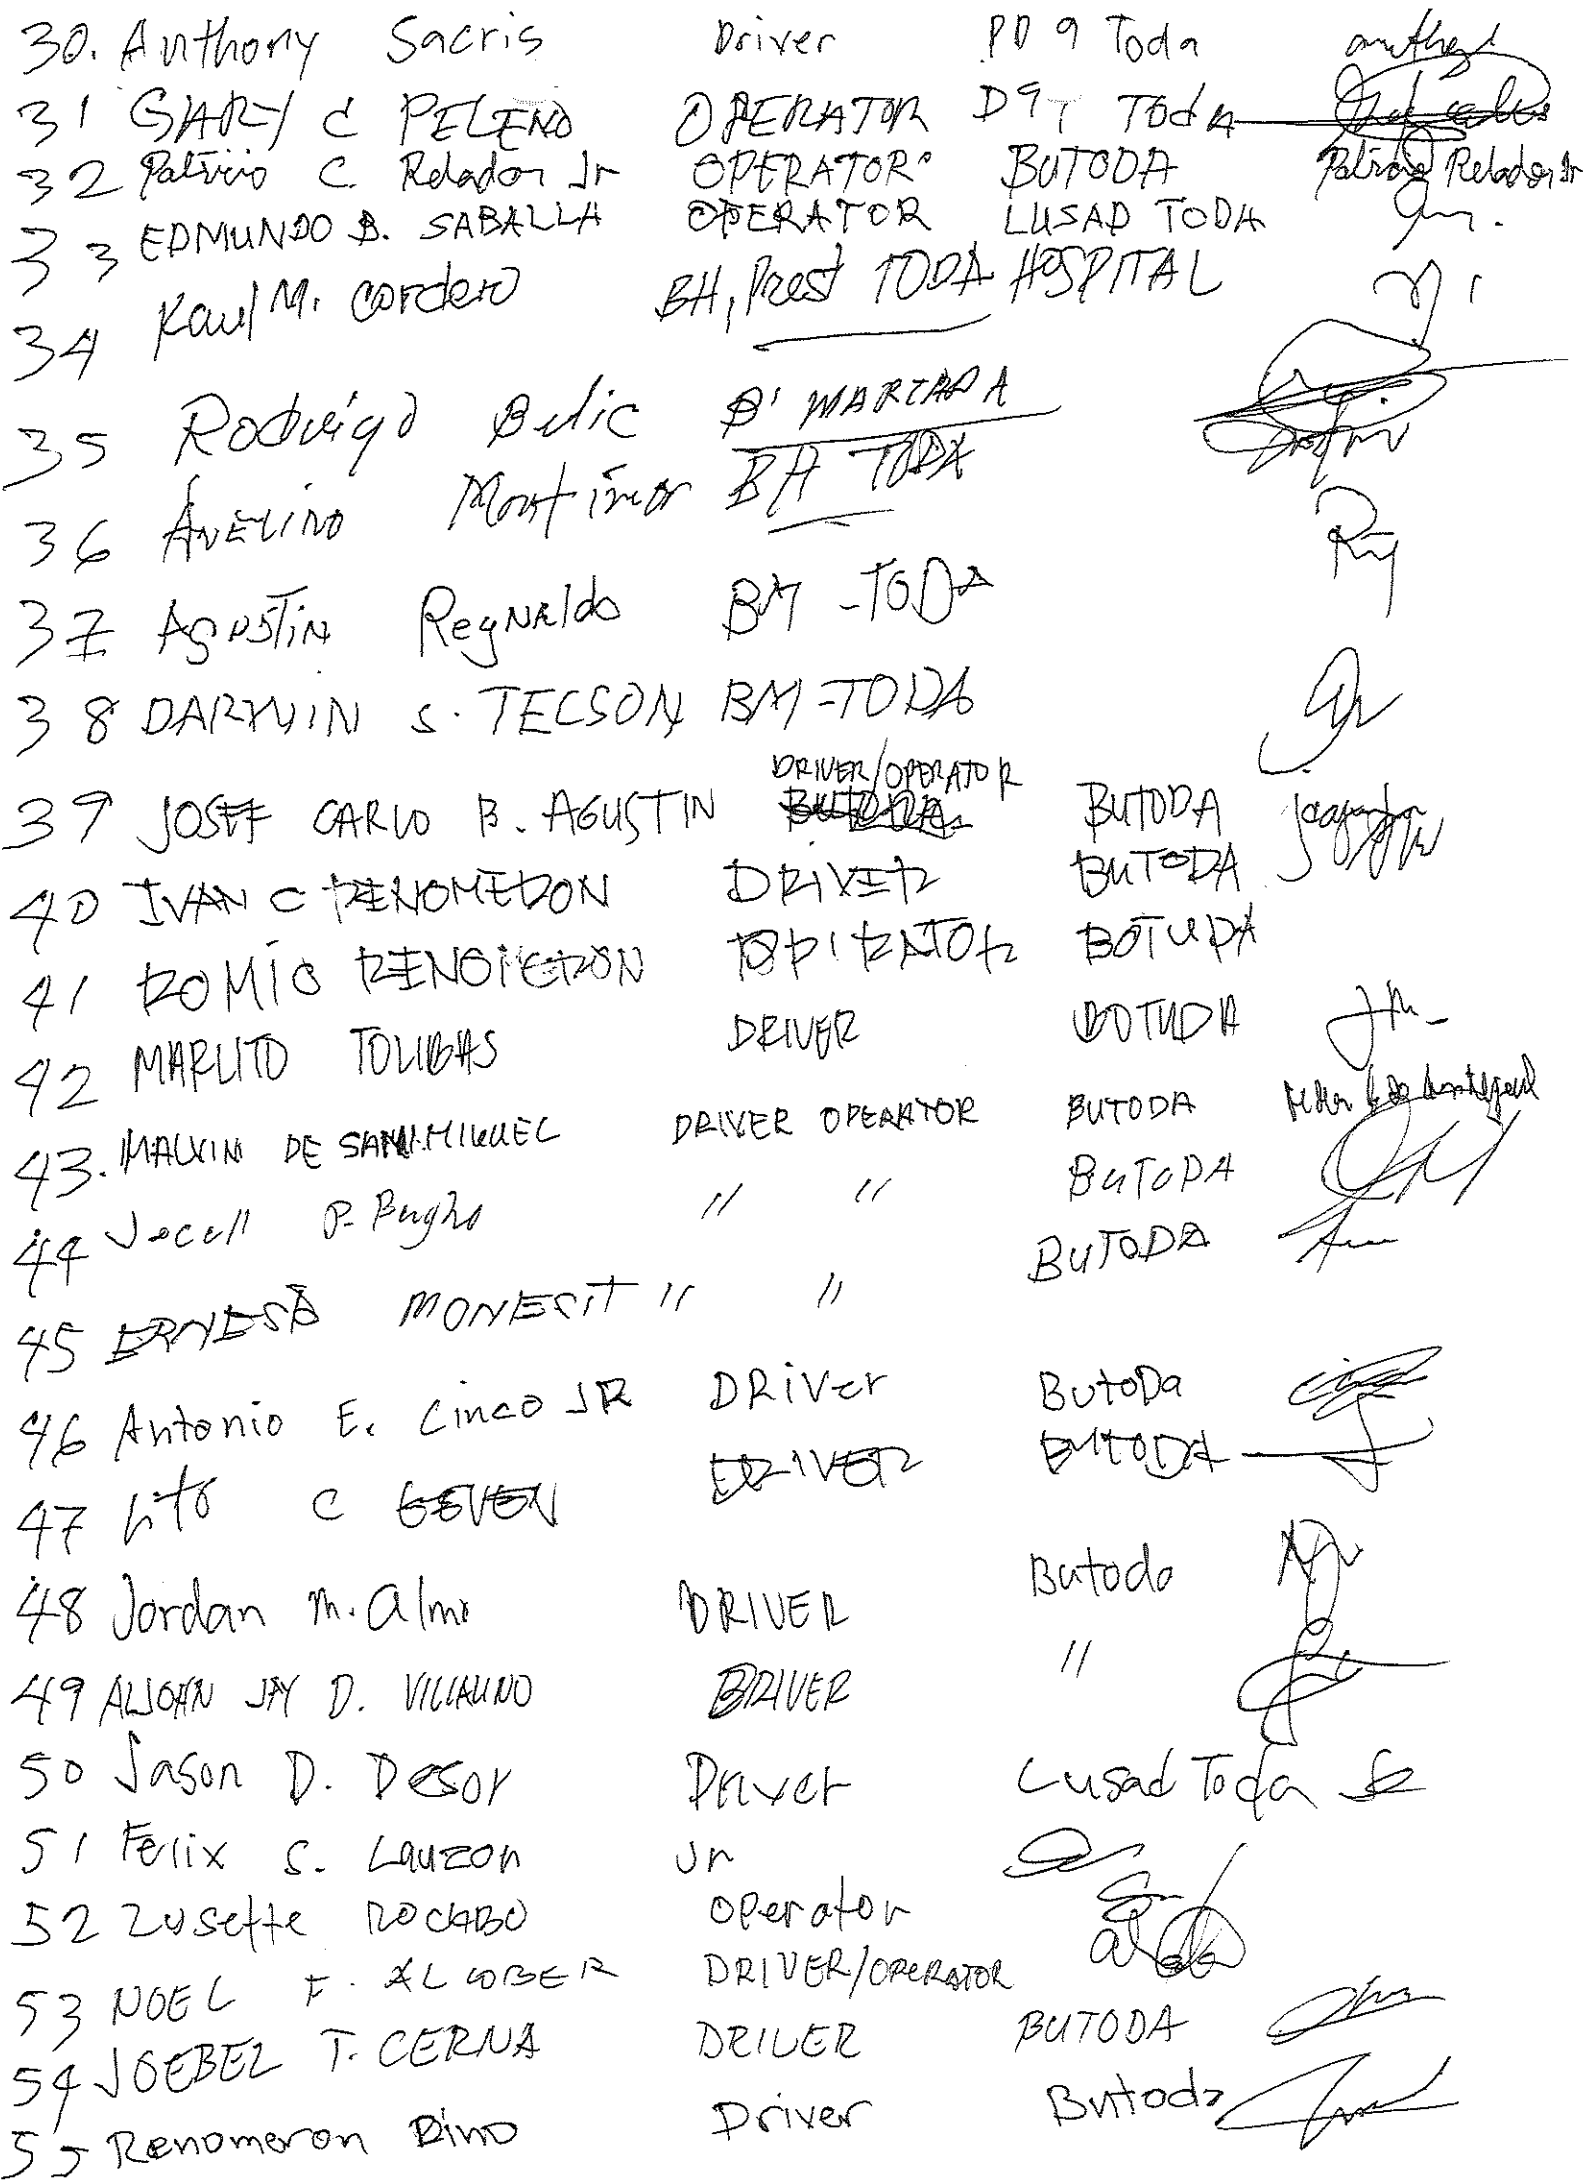 30. Anthony Sacris Driver PD 9 Toda
31 GARY C PELENO OPERATOR D9T TODA
32 Patricio C. Relador Jr OPERATOR BUTODA Patricio Relador Jr
33 EDMUNDO B. SABALLA OPERATOR LUSAD TODA
34 Raul M. Cordero BH, Prest TODA HOSPITAL
35 Rodrigo Belic
36 AVELINO BH TODA
37 AGUSTIN Regnaldo BM -TODA
38 DARWIN S. TECSON BM-TODA
39 JOSEF CARLO B. AGUSTIN DRIVER/OPERATOR BUTODA
40 IVAN C RENOMERON DRIVER BUTODA
41 ROMIO RENOMERON OPIRATOR BOTUDA
42 MARLITO TOLIBAS DRIVER BOTUDA
43. MALVIN DE SAN MIGUEL DRIVER OPERATOR BUTODA
44 P. " " BUTODA
45 MONESIT " " BUTODA
46 Antonio E. Cinco JR DRiver ButoDa
47 Lito C ESVEN DRIVER BUTODA
48 Jordan M. DRIVER Butoda
49 ALJOHN JAY D. VILLALINO DRIVER "
50 Jason D. Desoy Driver Lusad Toda
51 Felix S. Lauzon Jr
52 Zusette ROCABO operator
53 NOEL F. ALCOBER DRIVER/OPERATOR
54 JOEBEL T. CERNA DRILER BUTODA
55 Renomeron Dino Driver Butoda